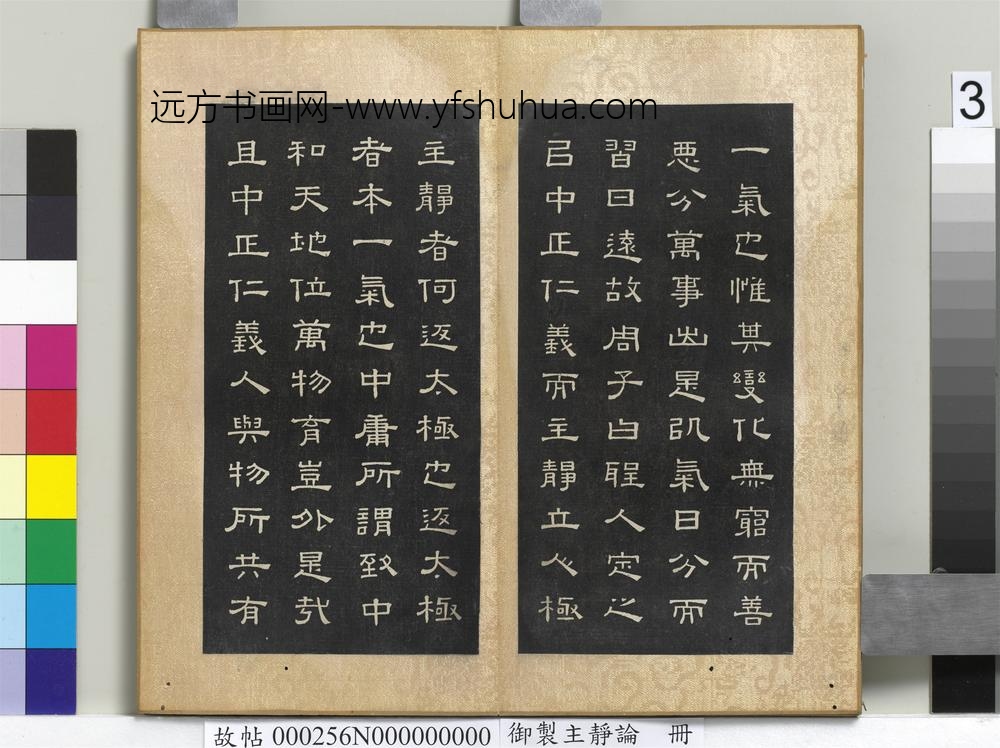 远方书画网-www.yfshuhua.com
3
一氣也惟其變化無窮而善
惡分萬事出是以氣日分而
習日遠故周子曰聖人定之
以中正仁義而主靜立人極
主靜者何返太極也返太極
者本一氣也中庸所謂致中
和天地位萬物育豈外是哉
且中正仁義人與物所共有
故帖 000256N000000000 御製主靜論 冊